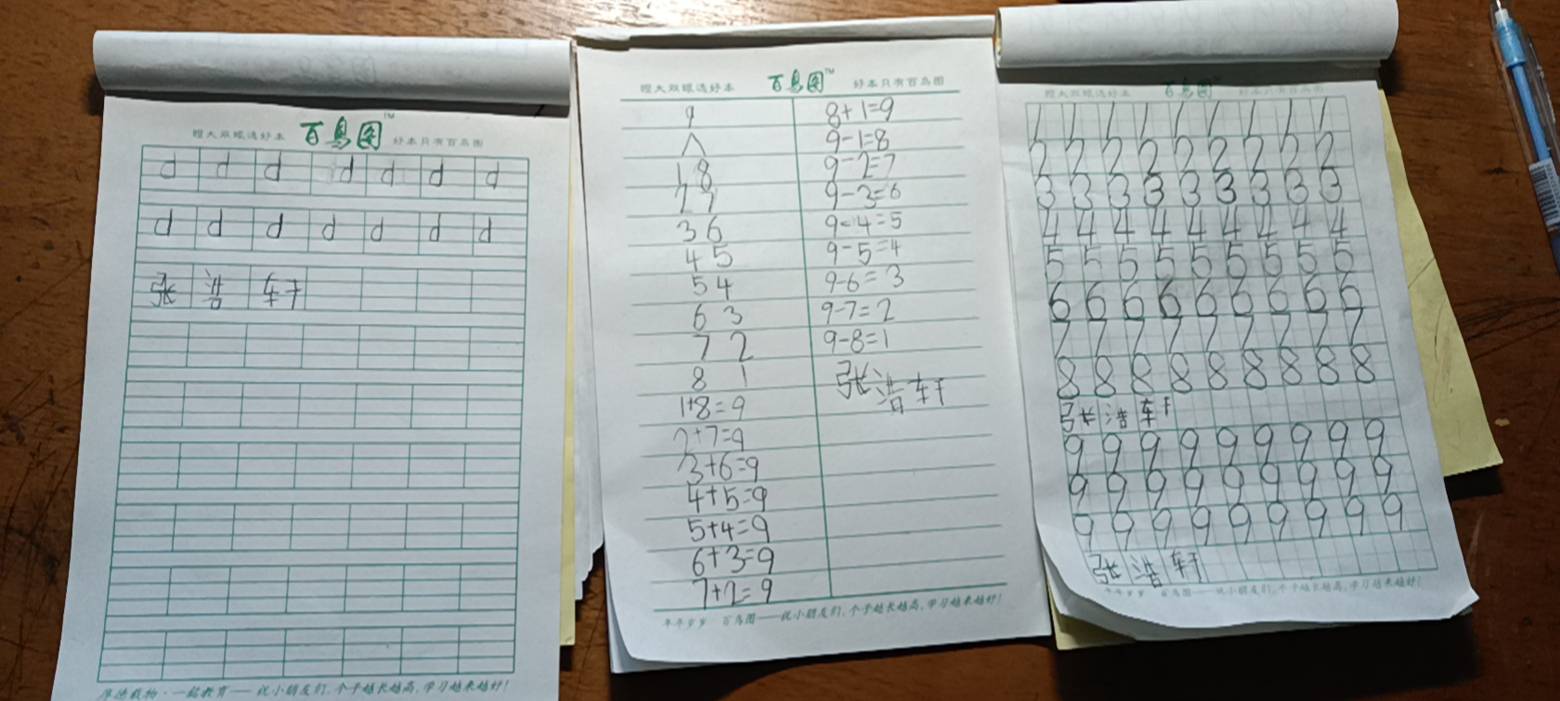 瞪大双眼选好本 百鸟图™ 好本只有百鸟图
d d d d d d d
d d d d d d d
张 浩 轩
一铭教育——祝小朋友们,个子越长越高,学习越来越好!
瞪大双眼选好本 百鸟图™ 好本只有百鸟图
9
1 8
2 7
3 6
4 5
5 4
6 3
7 2
8 1
1+8=9
2+7=9
3+6=9
4+5=9
5+4=9
6+3=9
7+2=9
8+1=9
9-1=8
9-2=7
9-3=6
9-4=5
9-5=4
9-6=3
9-7=2
9-8=1
张浩轩
年年岁岁 百鸟图——祝小朋友们,个子越长越高,学习越来越好!
瞪大双眼选好本 百鸟图 好本只有百鸟图
1 1 1 1 1 1 1 1 1
2 2 2 2 2 2 2 2 2
3 3 3 3 3 3 3 3 3
4 4 4 4 4 4 4 4 4
5 5 5 5 5 5 5 5 5
6 6 6 6 6 6 6 6 6
7 7 7 7 7 7 7 7 7
8 8 8 8 8 8 8 8 8
张 浩 轩
9 9 9 9 9 9 9 9 9
9 9 9 9 9 9 9 9 9
9 9 9 9 9 9 9 9 9
张 浩 轩
年年岁岁 百鸟图——祝小朋友们,个子越长越高,学习越来越好!